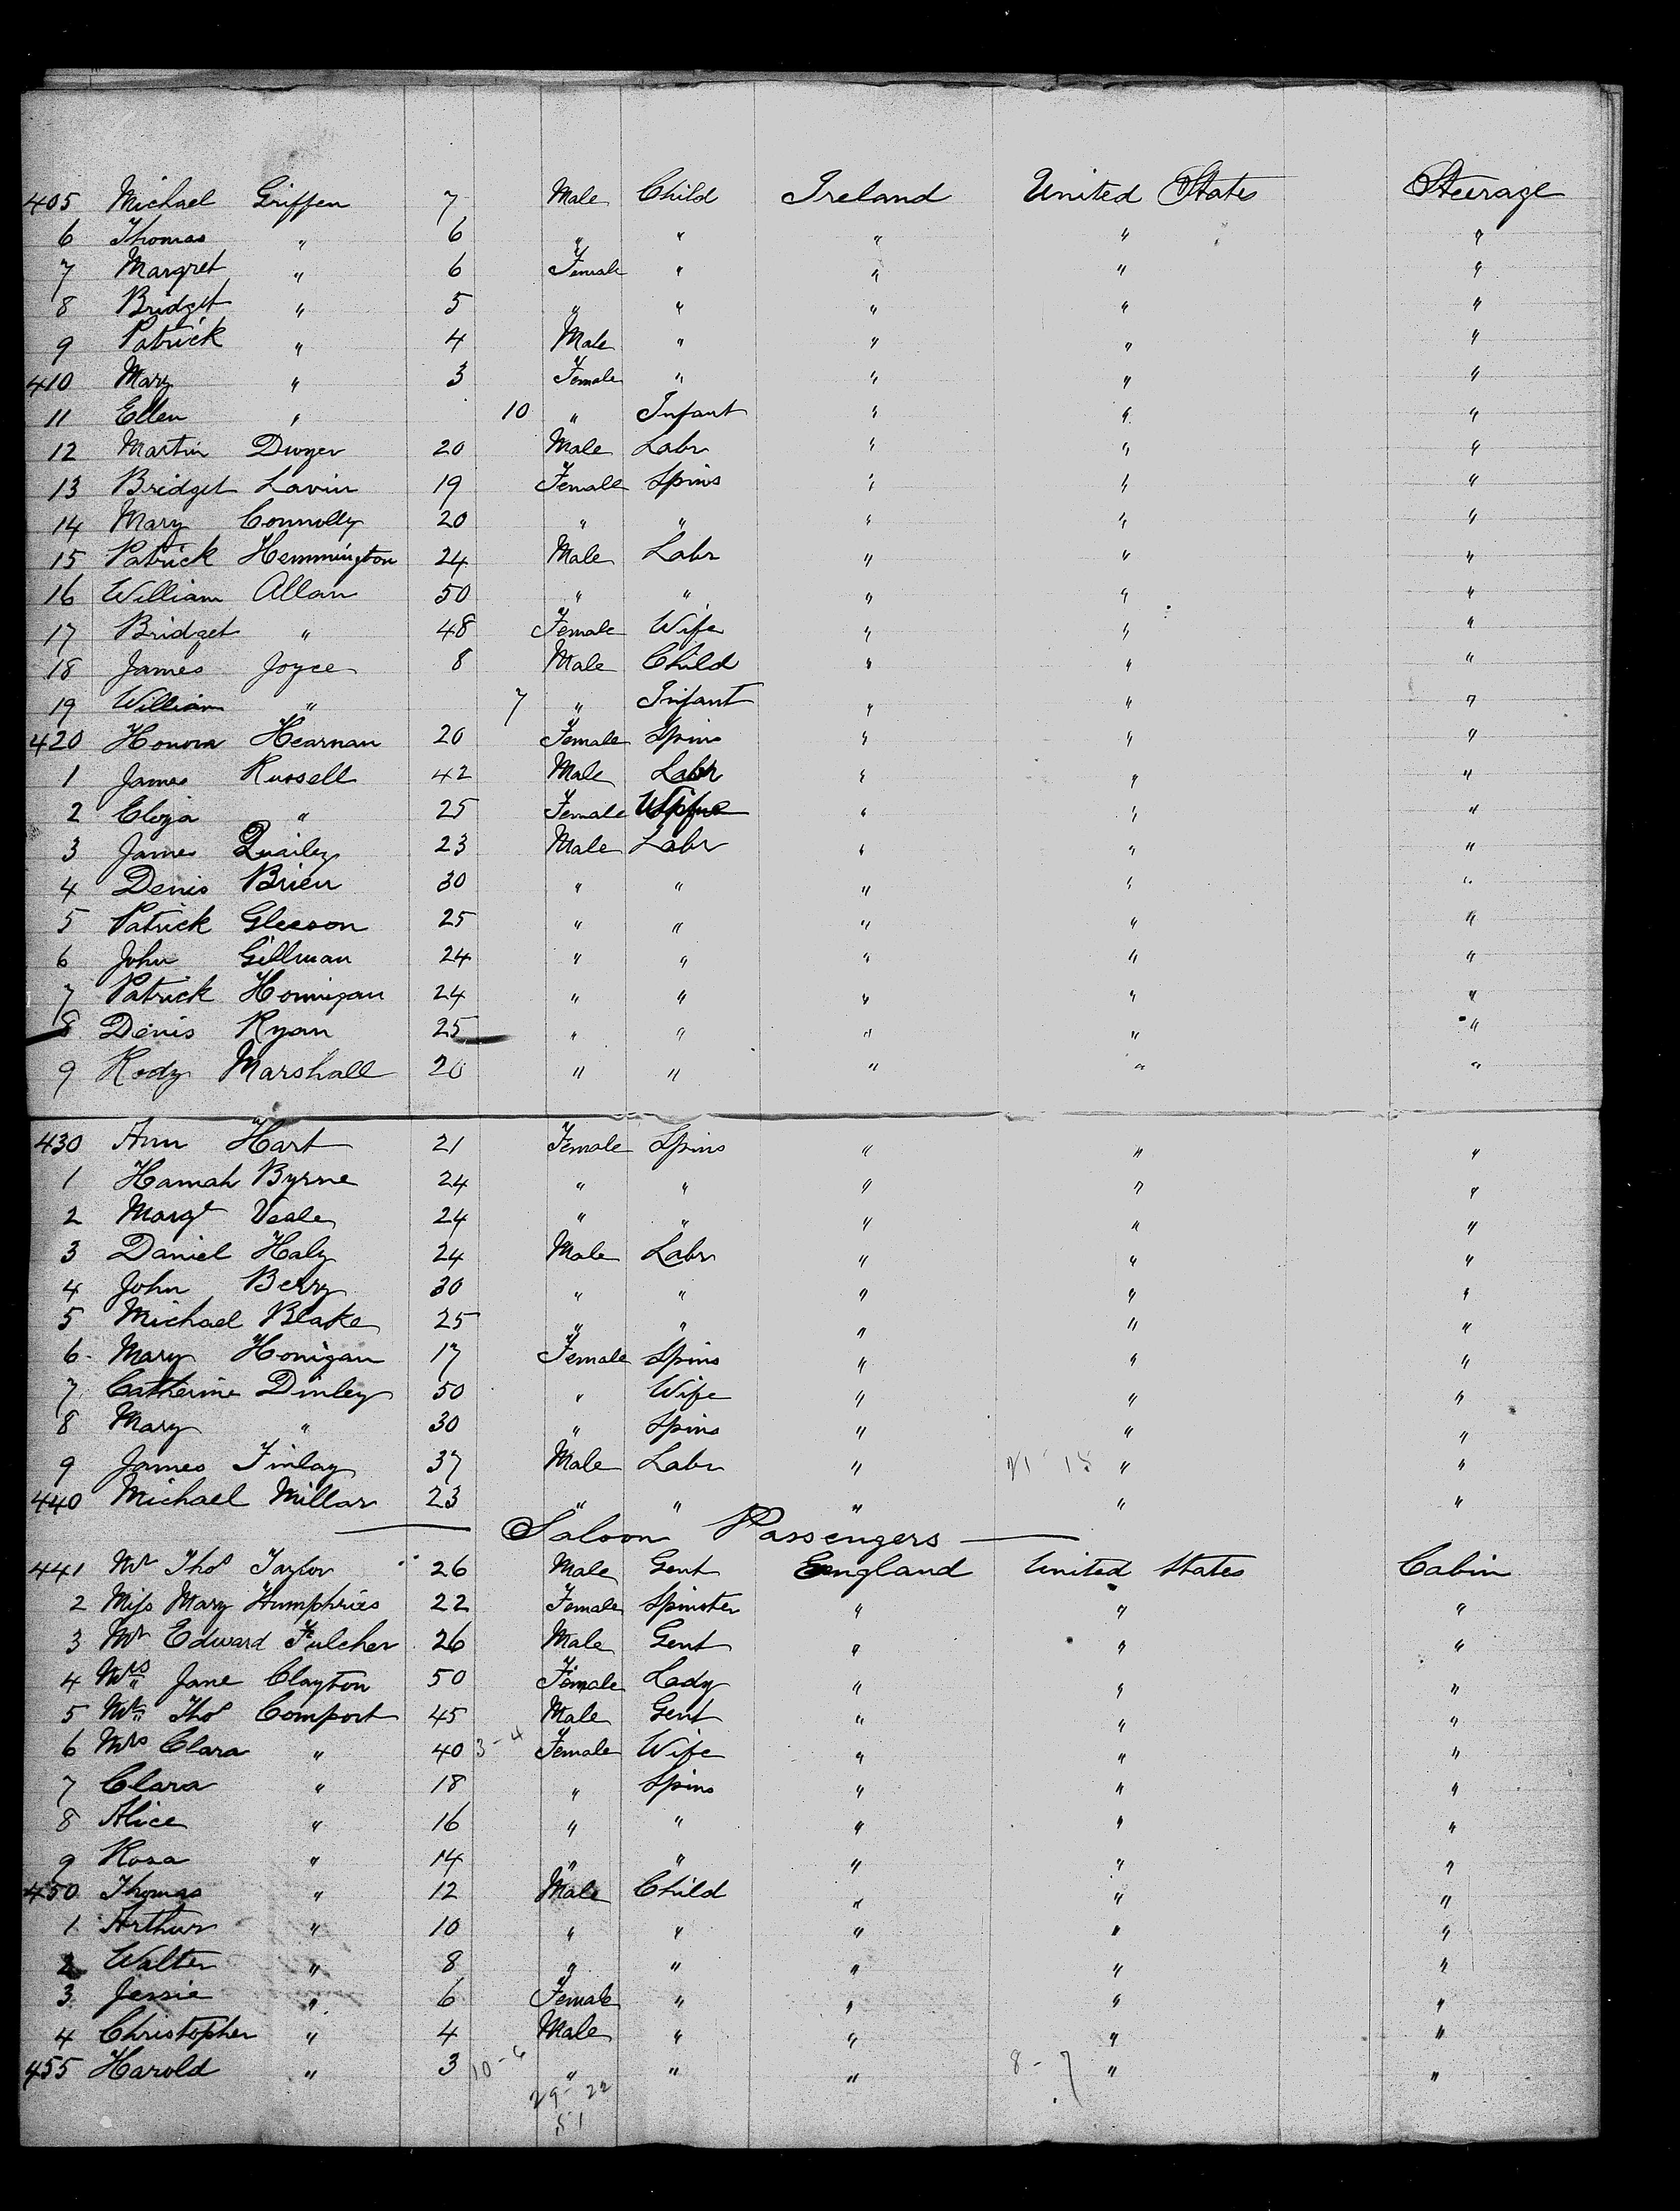 405 Michael Griffen 7 Male Child Ireland United States Steerage
6 Thomas " 6 " " " " "
7 Margret " 6 Female " " " "
8 Bridget " 5 " " " " "
9 Patrick " 4 Male " " " "
410 Mary " 3 Female " " " "
11 Ellen " 10 " Infant " " "
12 Martin Dwyer 20 Male Labr " " "
13 Bridget Lavin 19 Female Spins " " "
14 Mary Connolly 20 " " " " "
15 Patrick Hemmington 24 Male Labr " " "
16 William Allan 50 " " " " "
17 Bridget " 48 Female Wife " " "
18 James Joyce 8 Male Child " " "
19 William " 7 " Infant " " "
420 Honora Hearnan 20 Female Spins " " "
1 James Russell 42 Male Labr " " "
2 Eliza " 25 Female " " "
3 James Quailey 23 Male Labr " " "
4 Denis Brien 30 " " " " "
5 Patrick Gleeson 25 " " " " "
6 John Gillman 24 " " " " "
7 Patrick Hornigan 24 " " " " "
8 Denis Ryan 25 " " " " "
9 Rody Marshall 20 " " " " "
430 Ann Hart 21 Female Spins " " "
1 Hannah Byrne 24 " " " " "
2 Margt Veale 24 " " " " "
3 Daniel Haly 24 Male Labr " " "
4 John Berry 30 " " " " "
5 Michael Blake 25 " " " " "
6 Mary Honigan 17 Female Spins " " "
7 Catherine Dinley 50 " Wife " " "
8 Mary " 30 " Spins " " "
9 James Finlay 37 Male Labr " " "
440 Michael Millar 23 " " " " "
Saloon Passengers
441 Mr Thos Taylor 26 Male Gent England United States Cabin
2 Miss Mary Humphries 22 Female Spinster " " "
3 Mr Edward Fulcher 26 Male Gent " " "
4 Mrs Jane Clayton 50 Female Lady " " "
5 Mr Thos Comport 45 Male Gent " " "
6 Mrs Clara " 40 3-4 Female Wife " " "
7 Clara " 18 " Spins " " "
8 Alice " 16 " " " " "
9 Rosa " 14 " " " " "
450 Thomas " 12 Male Child " " "
1 Arthur " 10 " " " " "
2 Walter " 8 " " " " "
3 Jessie " 6 Female " " " "
4 Christopher " 4 Male " " " "
455 Harold " 3 10-6 " " " 8-7 " "
29-22
51